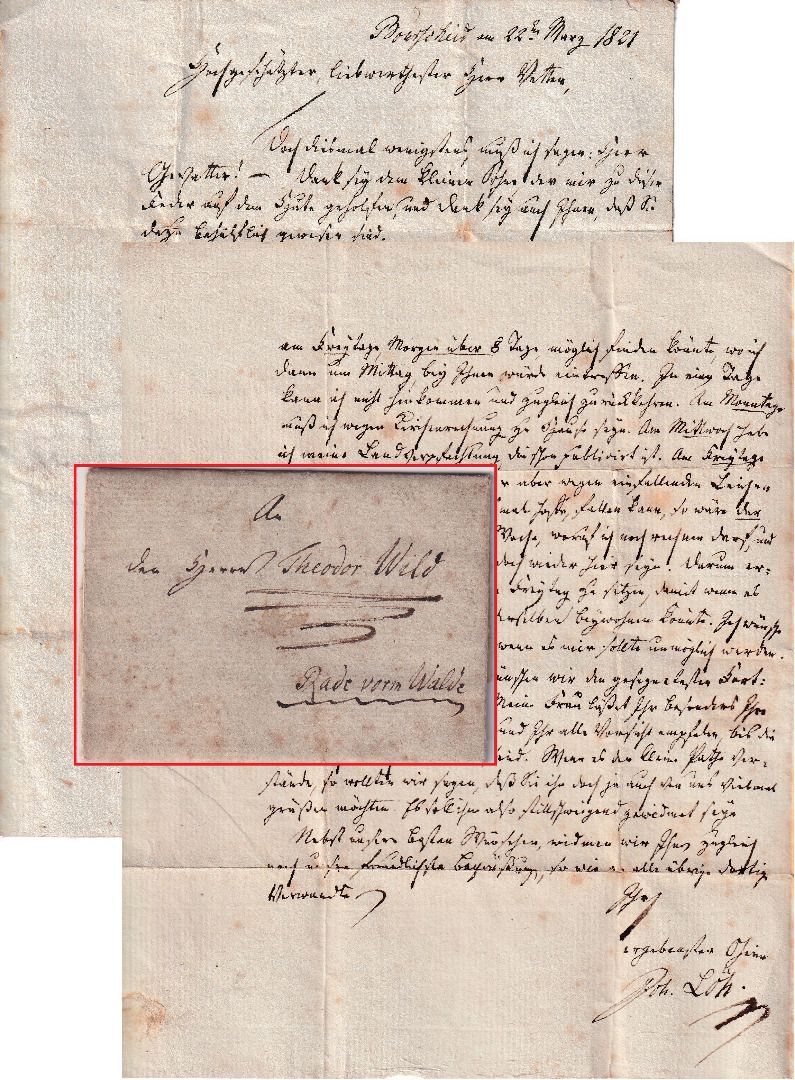 Bourscheid am 22ten Marz 1821
Hochgeschätzter, liebwerthester Herr Vetter,
Doch diesmal wenigstens, muß ich sagen: Herr
Gevatter! — Dank sey dem kleinen Sohne der mir zu dieser
Feder auf dem Hute geholfen, und Dank sey auch Ihnen, daß Sie
dazu behülflich gewesen sind.
am Freytage Morgen über 8 Tage, möglich finden könnte wo ich
dann um Mittag bey Ihnen würde eintreffen. In einem Tage
kann ich nicht hinkommen und zugleich zurückkehren. Am Montage
muß ich wegen Kirchenrechnung zu Hause seyn. Am Mittwoch habe
ich meine Landverpachtung, die schon publicirt ist. Am Freytage
r aber wegen einfallenden Leichen
fallen kann, so wäre der
Woche, worauf ich noch rechnen darf, und
doch wieder hier seyn. Darum er=
Freytag zu setzen, damit wenn es
derselben beywohnen könnte. Ich wünsche
wenn es mir sollte unmöglich werden.
wünschen wir den gesegnetesten Fort=
Meine Frau läßet Ihr besonders
und Ihr alle Vorsicht empfelen, bis die
sind. Wenn es der kleine Pathe ver=
stände, so wollten wir sagen, daß Sie ihn doch ja auch von uns vielmal
grüßen möchten. Es soll ihm also stillschweigend gewidmet seyn
Nebst unsern besten Wünschen, widmen wir Ihnen zugleich
noch unsre freundlichste Begrüßung, so wie an alle übrige dortige
Verwandte
Ihr
ergebenster Oheim
Joh. Löh.
An
den Herrn Theodor Wild
Rade vorm Walde